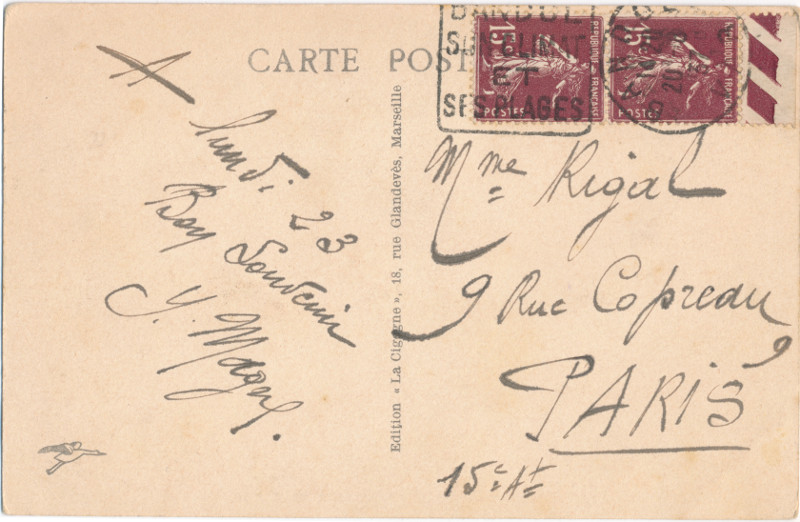 CARTE POST
BANDOL
SON CLIMAT
ET
SES PLAGES
15c
REPUBLIQUE FRANCAISE
POSTES
15c
REPUBLIQUE FRANCAISE
POSTES
Lundi 23
Bon Souvenir
Y. Magne.
Edition « La Cigogne », 18, rue Glandevès, Marseille
Mme Rigal
9 Rue Copreau
PARIS
15e At